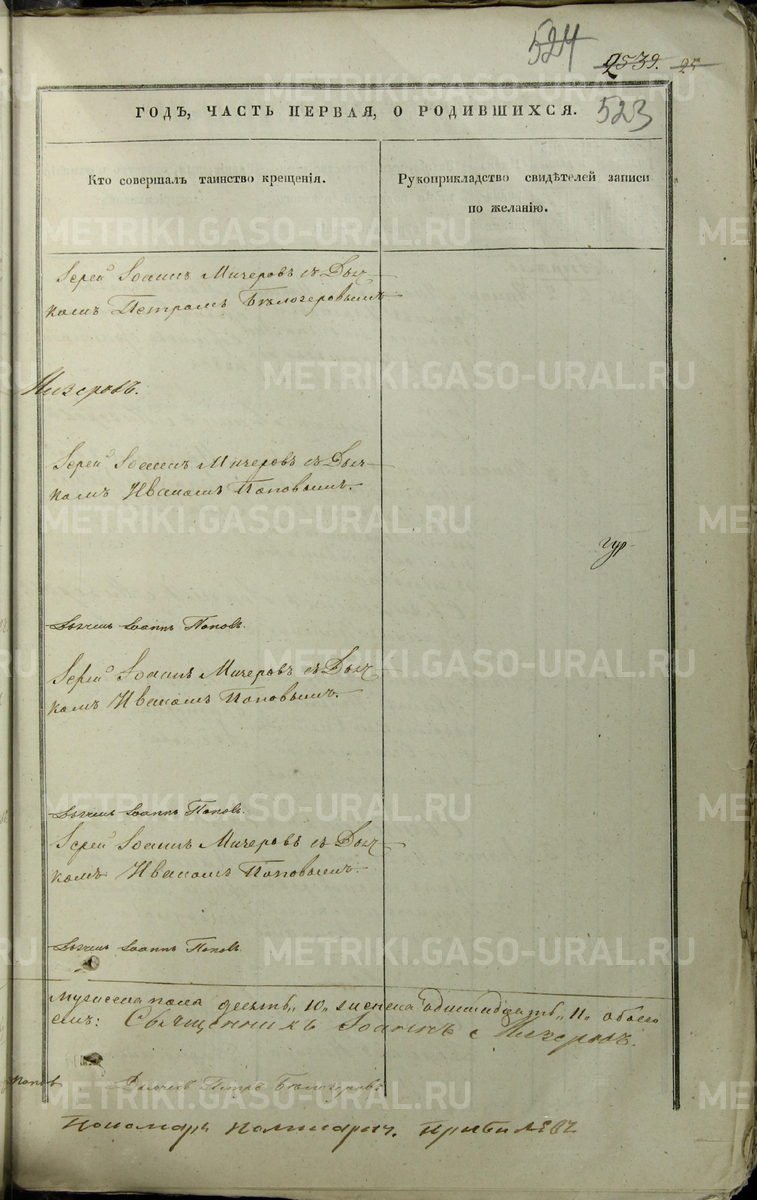 524
2539. 25
ГОДЪ, ЧАСТЬ ПЕРВАЯ, О РОДИВШИХСЯ. 523
Кто совершалъ таинство крещенія.
Рукоприкладство свидѣтелей записи
по желанію.
Іерей Іоаннъ Мизеровъ съ Дьяч-
комъ Петромъ Бѣлозеровымъ
Мизеровъ.
Іерей Іоаннъ Мизеровъ съ Дьяч-
комъ Иваномъ Поповымъ.
Дьячекъ Іоаннъ Поповъ.
Іерей Іоаннъ Мизеровъ съ Дьяч-
комъ Иваномъ Поповымъ.
Дьячекъ Іоаннъ Поповъ.
Іерей Іоаннъ Мизеровъ съ Дьяч-
комъ Иваномъ Поповымъ.
Дьячекъ Іоаннъ Поповъ
мужеска пола десять „10„ женска одиннадцать „11„ обоего
Священникъ Іоаннъ Мизеровъ.
Поповъ Дьячекъ Петръ Бѣлозеровъ
Пономарь Прибылевъ
METRIKI.GASO-URAL.RU